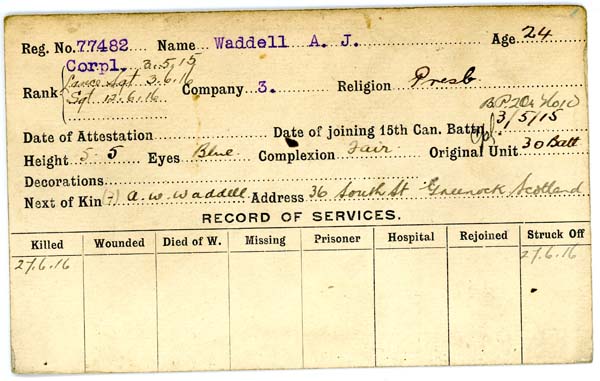 Reg. No. 77482 Name Waddell A. J. Age 24
Corpl. 3.5.15
Rank Lance Sgt 3.6.16 Company 3. Religion Presb
Sgt. 12.6.16
Date of Attestation Date of joining 15th Can. Battn. 3/5/15
Height 5-5 Eyes Blue Complexion Fair Original Unit 30 Batt
Decorations
Next of Kin (F) A. W. Waddell Address 36 South St Greenock Scotland
RECORD OF SERVICES.
Killed Wounded Died of W. Missing Prisoner Hospital Rejoined Struck Off
27.6.16 27.6.16